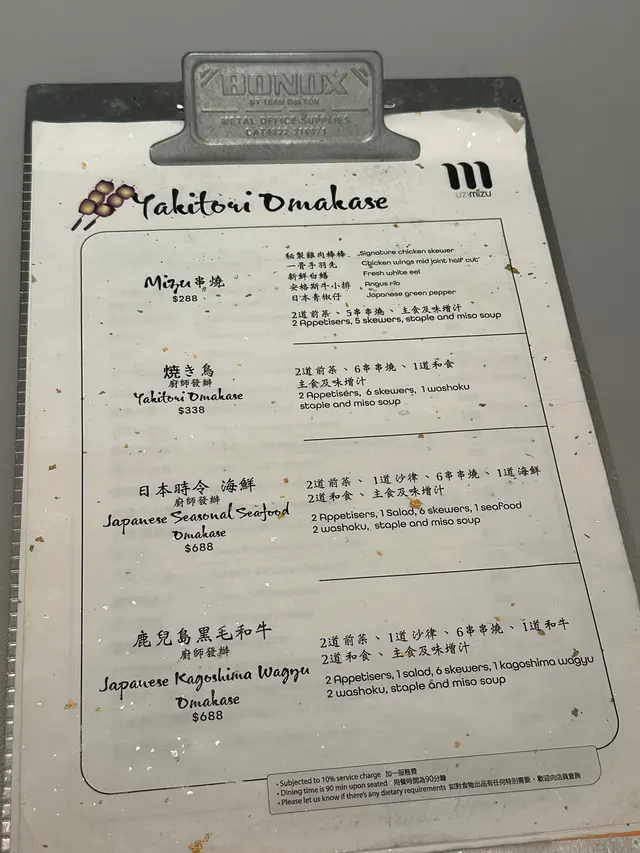 BONOX
BY TEAM DULTON
METAL OFFICE SUPPLIES
Yakitori Omakase
mizu
Mizu 串燒
$288
秘製雞肉棒棒 Signature chicken skewer
一骨手羽先 Chicken wings mid joint half cut
新鮮白鱔 Fresh white eel
安格斯牛小排 Angus rib
日本青椒仔 Japanese green pepper
2道前菜、5串串燒、主食及味增汁
2 Appetisers, 5 skewers, staple and miso soup
焼き鳥
廚師發辦
Yakitori Omakase
$338
2道前菜、6串串燒、1道和食
主食及味增汁
2 Appetisers, 6 skewers, 1 washoku
staple and miso soup
日本時令 海鮮
廚師發辦
Japanese Seasonal Seafood
Omakase
$688
2道前菜、1道沙律、6串串燒、1道海鮮
2道和食、主食及味增汁
2 Appetisers, 1 Salad, 6 skewers, 1 seafood
2 washoku, staple and miso soup
鹿兒島黑毛和牛
廚師發辦
Japanese Kagoshima Wagyu
Omakase
$688
2道前菜、1道沙律、6串串燒、1道和牛
2道和食、主食及味增汁
2 Appetisers, 1 salad, 6 skewers, 1 kagoshima wagyu
2 washoku, staple and miso soup
• Subjected to 10% service charge 加一服務費
• Dining time is 90 min upon seated 用餐時間為90分鐘
• Please let us know if there's any dietary requirements 如對食物出品有任何特別需要，歡迎向店員查詢